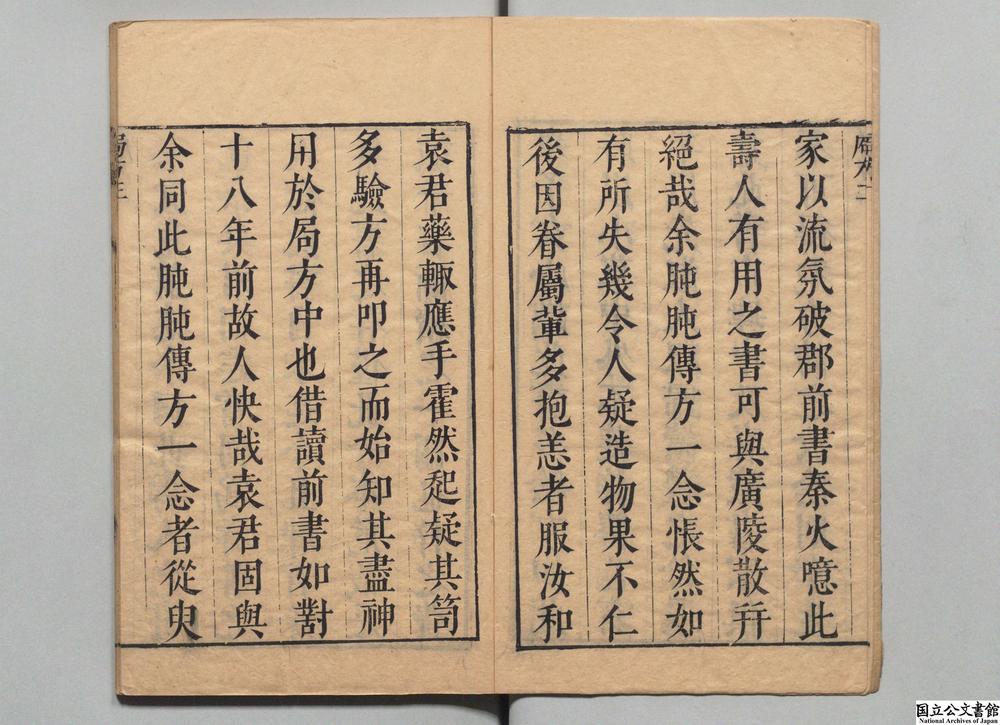 家以流氛破郡前書秦火噫此
壽人有用之書可與廣陵散幷
絕哉余肫肫傳方一念悵然如
有所失幾令人疑造物果不仁
後因眷屬軰多抱恙者服汝和
袁君藥輙應手霍然起疑其笥
多驗方再叩之而始知其盡神
用於局方中也借讀前書如對
十八年前故人快哉袁君固與
余同此肫肫傳方一念者從臾
国立公文書館
National Archives of Japan